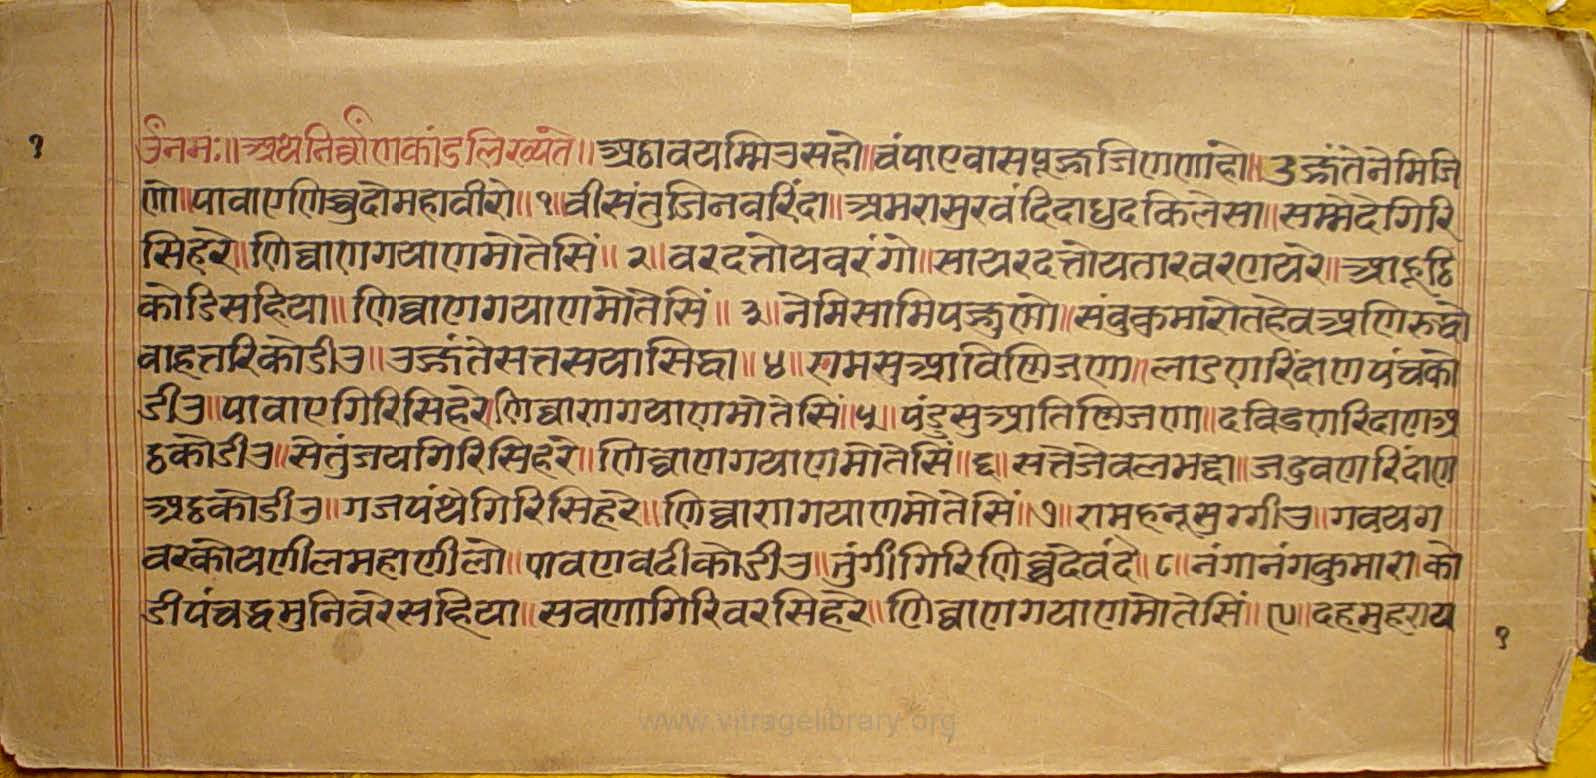 १
ॐनमः॥अथनिर्व्वाणकांडलिख्यंते॥अठावयम्मिउसहो॥चंपाएवासपूज्जजिणणाहो॥उज्जंतेनेमिजि
णो॥पावाएणिव्वुदोमहावीरो॥१॥वीसंतुजिनवरिंदा॥अमरासुरवंदिदाधुदकिलेसा॥सम्मेदेगिरि
सिहरे॥णिव्वाणगयाणमोतेसिं॥२॥वरदत्तोयवरंगो॥सायरदत्तोयतारवरणयरे॥आहूठि
कोडिसहिया॥णिव्वाणगयाणमोतेसिं॥३॥नेमिसामिपज्जुणो॥संवुकुमारोतहेवअणिरुद्धो
वाहत्तरिकोडीउ॥उज्जंतेसत्तसयासिद्धा॥४॥रामसुआविण्णिजणा॥लाडणरिंदाणपंचको
डीउ॥पावाएगिरिसिहरे॥णिव्वाणगयाणमोतेसिं॥५॥पंडुसुआतिण्णिजणा॥दविडणरिदाणअ
ठ्ठकोडीउ॥सेतुंजयगिरिसिहरे॥णिव्वाणगयाणमोतेसिं॥६॥सत्तेजेवलभद्दा॥जदुवणरिंदाण
अठ्ठकोडीउ॥गजपंथेगिरिसिहरे॥णिव्वाणगयाणमोतेसिं॥७॥रामहनूसुग्गीउ॥गवयग
वरकोयणीलमहाणीलो॥णवणवदीकोडीउ॥तुंगीगिरिणिव्वुदेवंदे॥८॥नंगानंगकुमारा॥को
डीपंचद्धमुनिवरेसहिया॥सवणागिरिवरसिहरे॥णिव्वाणगयाणमोतेसिं॥९॥दहमुहराय
१
www.vitragelibrary.org